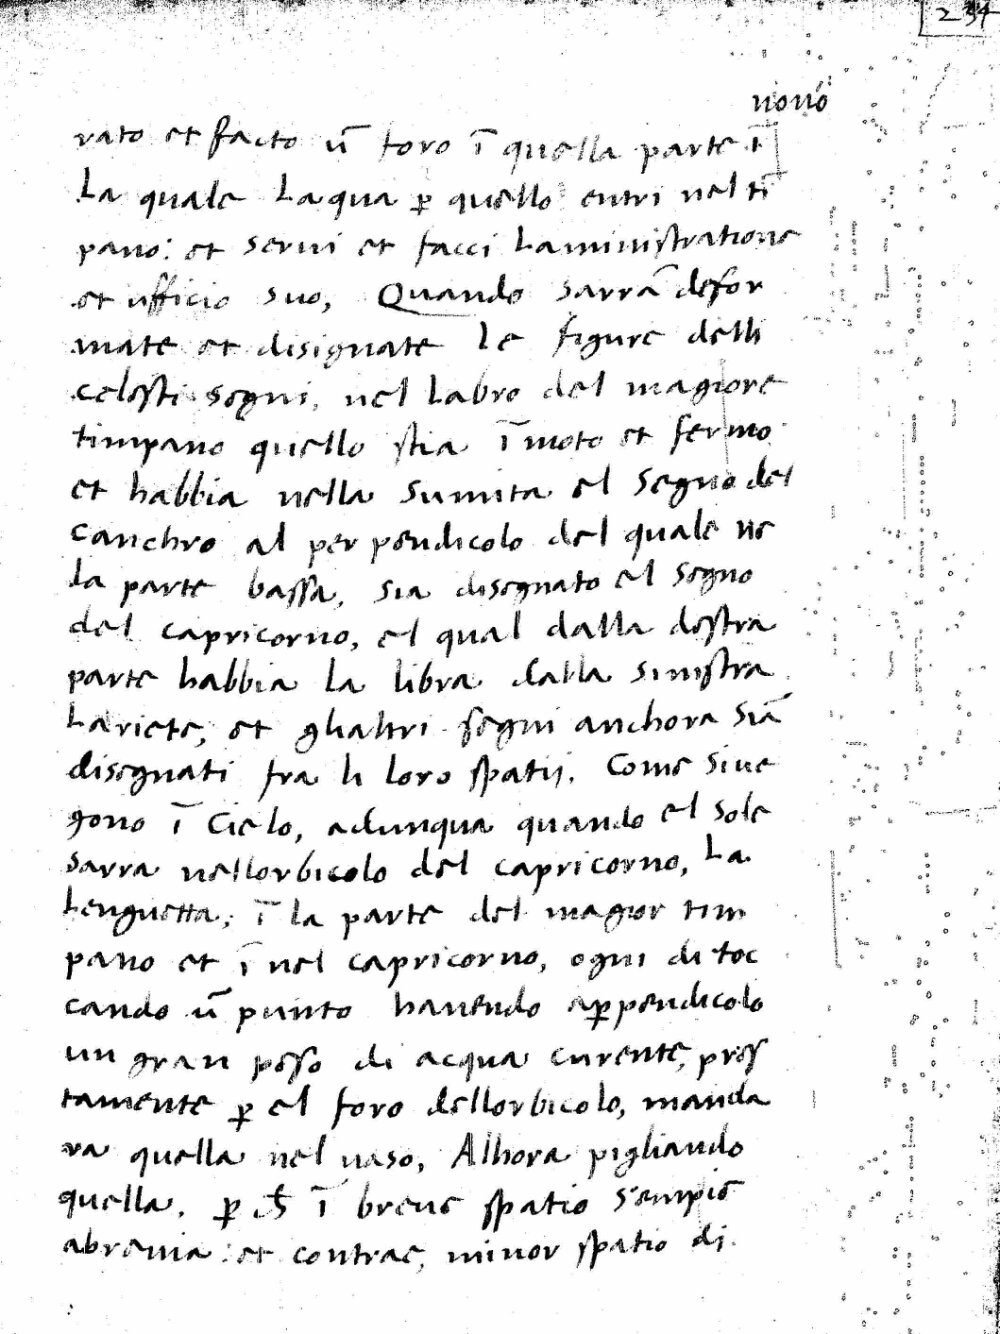 234
nono
rato et facto ũ foro ĩ quella parte ĩ
La quale Laqua ꝑ quello entri nel ti
pano: et serui et facci Laministratione
et ufficio suo, Quando sarrã defor
mate et disignate Le figure delli
celesti segni, nel Labro del magiore
timpano quello stia ĩmoto et fermo
et habbia nella sumita el segno del
canchro al perpendicolo del quale ne
la parte bassa, sia disegnato el segno
del capricorno, el qual dalla destra
parte habbia la libra dalla sinistra
Lariete, et ghaltri segni anchora siã
disegnati fra li loro spatij. Come siue
gono ĩ Cielo, adunqua quando el sole
sarra nellorbicolo del capricorno, La
Lenguetta, ĩ la parte del magior tim
pano et ĩ nel capricorno, ogni di toc
cando ũ punto hauendo aꝑpendicolo
un gran peso di acqua curente, pres
tamente ꝑ el foro dellorbicolo, manda
ra quella nel uaso, Alhora pigliando
quella, ꝑ ĩ breue spatio sempie
abreuia: et contrae, minor spatio di